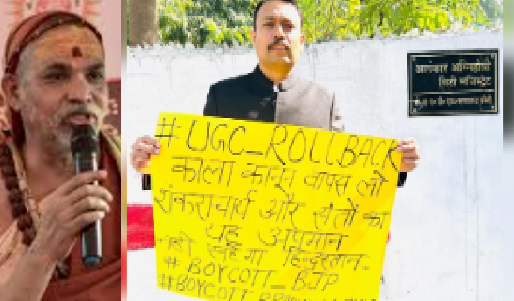 #UGC_ROLLBACK
काला कानून वापस लो
शंकराचार्य और संतों का
यह अपमान
नहीं सहेगा हिन्दुस्तान-
#BOYCOTT_BJP
#BOYCOTT
अलंकार अग्निहोत्री
सिटी मजिस्ट्रेट